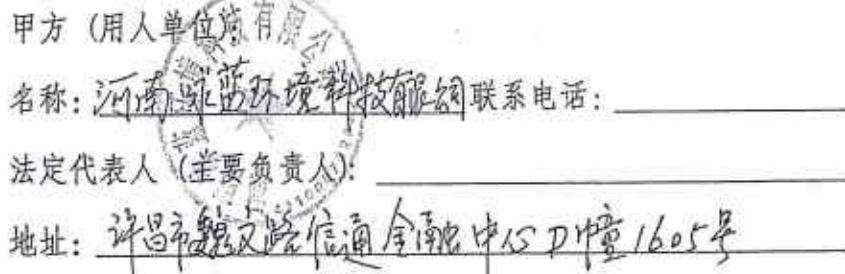 甲方（用人单位）
名称：河南咏蓝环境科技有限公司联系电话：
法定代表人（主要负责人）：
地址：许昌市魏文路信通金融中心D幢1605号